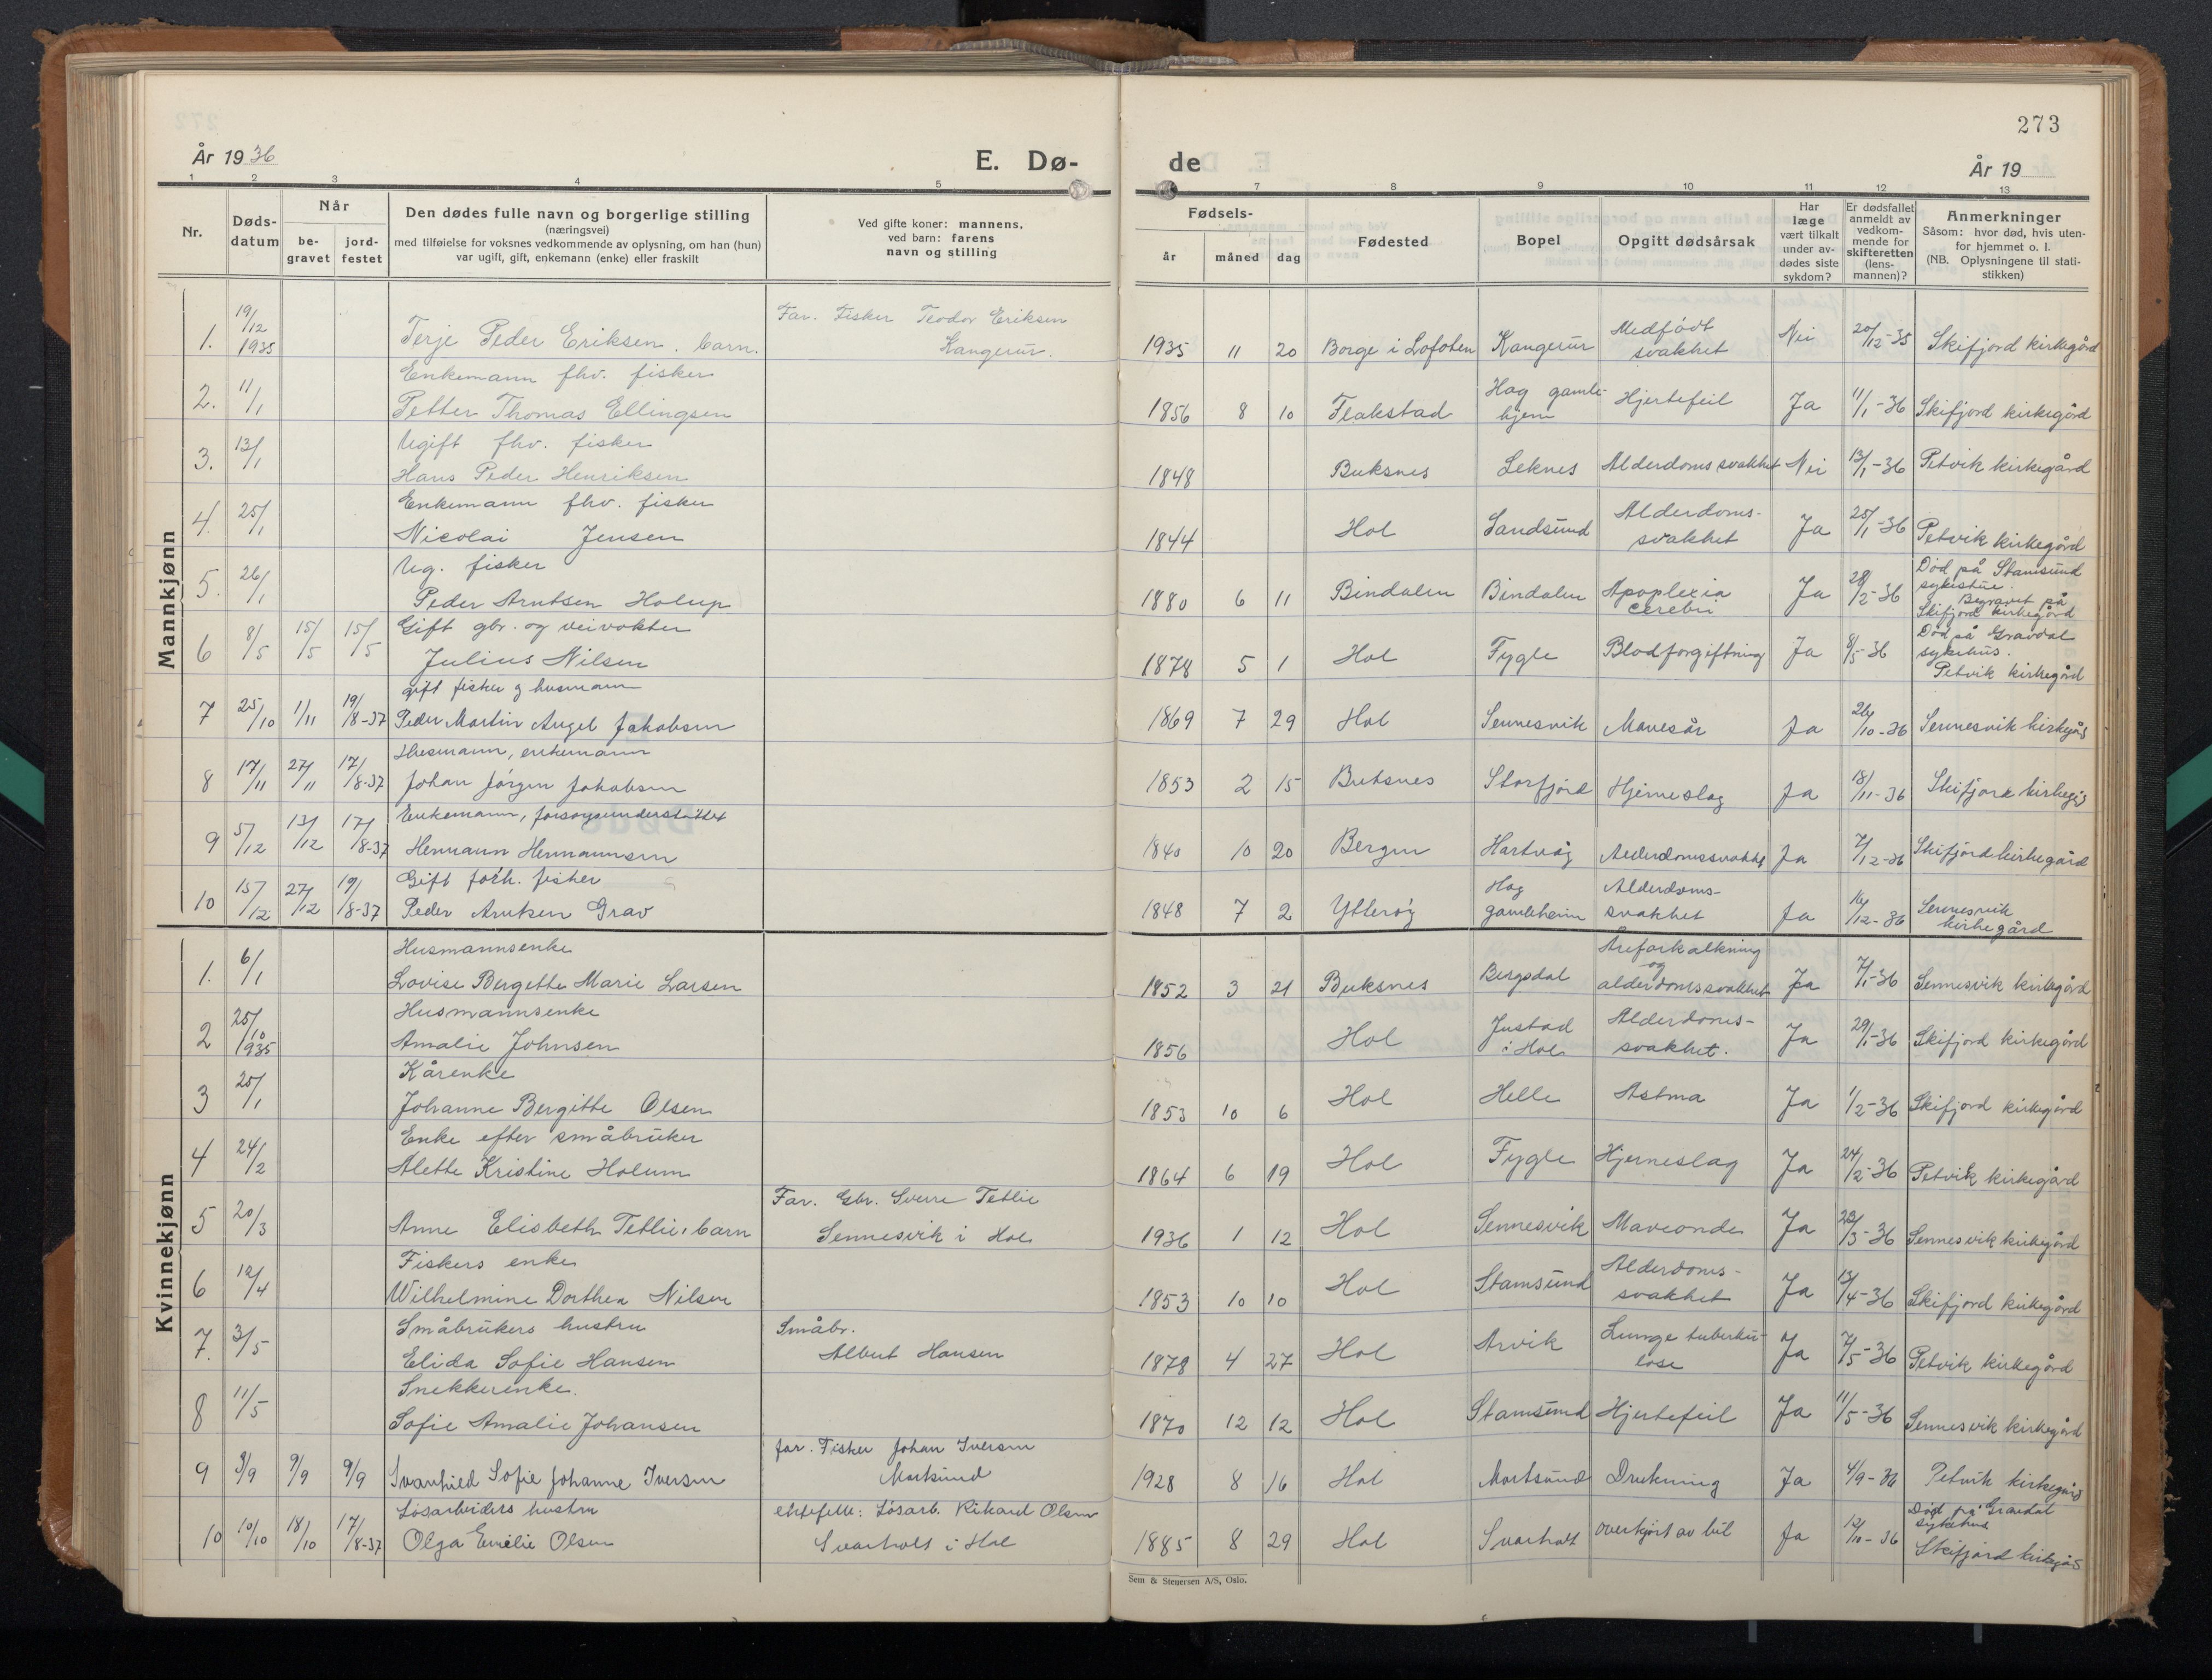 273
År 1936
E. Dø-
de
År 19
1 2 3 4 5 7 8 9 10 11 12 13
Nr.
Døds-
datum
Når
be-
gravet
jord-
festet
Den dødes fulle navn og borgerlige stilling
(næringsvei)
med tilføielse for voksnes vedkommende av oplysning, om han (hun)
var ugift, gift, enkemann (enke) eller fraskilt
Ved gifte koner: mannens,
ved barn: farens
navn og stilling
Fødsels-
år måned dag
Fødested
Bopel
Opgitt dødsårsak
Har
læge
vært tilkalt
under av-
dødes siste
sykdom?
Er dødsfallet
anmeldt av
vedkom-
mende for
skifteretten
(lens-
mannen)?
Anmerkninger
Såsom: hvor død, hvis uten-
for hjemmet o. l.
(NB. Oplysningene til stati-
stikken)
Mannkjønn
1. 19/12 1935 Terje Peder Eriksen. barn. Far. Fisker Teodor Eriksen Kangerur. 1935 11 20 Borge i Lofoten Kangerur Medfødt svakhet Nei 20/12-35 Skifjord kirkegård
Enkemann fhv. fisker
2. 11/1 Petter Thomas Ellingsen 1856 8 10 Flakstad Hag gamlehjem Hjertefeil Ja 11/1-36 Skifjord kirkegård
Ugift fhv. fisker
3. 13/1 Hans Peder Henriksen 1848 Buksnes Leknes Alderdomssvakhet Nei 13/1-36 Petvik kirkegård
Enkemann fhv. fisker
4. 25/1 Nicolai Jensen 1844 Hol Sandsund Alderdoms-svakhet Ja 25/1-36 Petvik kirkegård
Ug. fisker
5. 26/1 Peder Arntsen Holup 1880 6 11 Bindalen Bindalen Apoplexia cerebri Ja 28/2-36 Død på Stamsund sykestue. Begravet på Skifjord kirkegård
Gift gbr. og veivokter
6 8/5 15/5 15/5 Julius Nilsen 1878 5 1 Hol Fygle Blodforgiftning Ja 8/5-36 Død på Gravdal sykehus. Petvik kirkegård
gift fisker og husmann
7 25/10 1/11 19/8-37 Peder Martin Angel Jakobsen 1869 7 29 Hol Sennesvik Mavesår Ja 26/10-36 Sennesvik kirkegård
Husmann, enkemann
8 17/11 27/11 17/8-37 Johan Jörgen Jakobsen 1853 2 15 Buksnes Storfjord Hjerneslag Ja 18/11-36 Skifjord kirkegård
Enkemann, forsorgsunderstöttet
9 5/12 13/12 17/8-37 Hermann Hermannsen 1840 10 20 Bergen Hartvåg Alderdomssvakhet Ja 7/12-36 Skifjord kirkegård
Gift forh. fisker
10 15/12 27/12 19/8-37 Peder Arntsen Grav 1848 7 2 Ytteröy Hag gamleheim Alderdoms-svakhet Ja 16/12-36 Sennesvik kirkegård
Kvinnekjønn
Husmannsenke
1. 6/1 Lovise Bergette Marie Larsen 1852 3 21 Buksnes Bergsdal Åreforkalkning og alderdomssvakhet Ja 7/1-36 Sennesvik kirkegård
Husmannsenke
2 25/10 1935 Amalie Johnsen 1856 Hol Justad i Hol Alderdoms-svakhet. Ja 29/1-36 Skifjord kirkegård
Kårenke
3 25/1 Johanne Bergitte Olsen 1853 10 6 Hol Helle Astma Ja 1/2-36 Skifjord kirkegård
Enke efter småbruker
4 24/2 Alette Kristine Holum 1864 6 19 Hol Fygle Hjerneslag Ja 24/2-36 Petvik kirkegård
5 20/3 Anne Elisbeth Tetlie, barn Far. Gbr. Sverre Tetlie Sennesvik i Hol 1936 1 12 Hol Sennesvik Maveonde Ja 23/3-36 Sennesvik kirkegård
Fiskers enke
6 12/4 Wilhelmine Dorthea Nilsen 1853 10 10 Hol Stamsund Alderdoms-svakhet Ja 13/4-36 Skifjord kirkegård
Småbrukers hustru
7. 3/5 Elida Sofie Hansen Småbr. Albert Hansen 1878 4 27 Hol Arvik Lungetuberku-lose Ja 7/5-36 Petvik kirkegård
Snekkerenke.
8 11/5 Sofie Amalie Johansen 1870 12 12 Hol Stamsund Hjertefeil Ja 11/5-36 Sennesvik kirkegård
9 3/9 9/9 9/9 Svanhild Sofie Johanne Iversen far. Fisker Johan Iversen Mortsund 1928 8 16 Hol Mortsund Drukning Ja 4/9-36 Petvik kirkegård
Løsarbeiders hustru
10 10/10 18/10 17/8-37 Olga Emelie Olsen ektefelle: Løsarb. Rikard Olsen Svarholt i Hol 1885 8 29 Hol Svarholt overkjørt av bil Ja 12/10-36 Død på Gravdal sykehus Skifjord kirkegård
Sem & Stenersen A/S, Oslo.